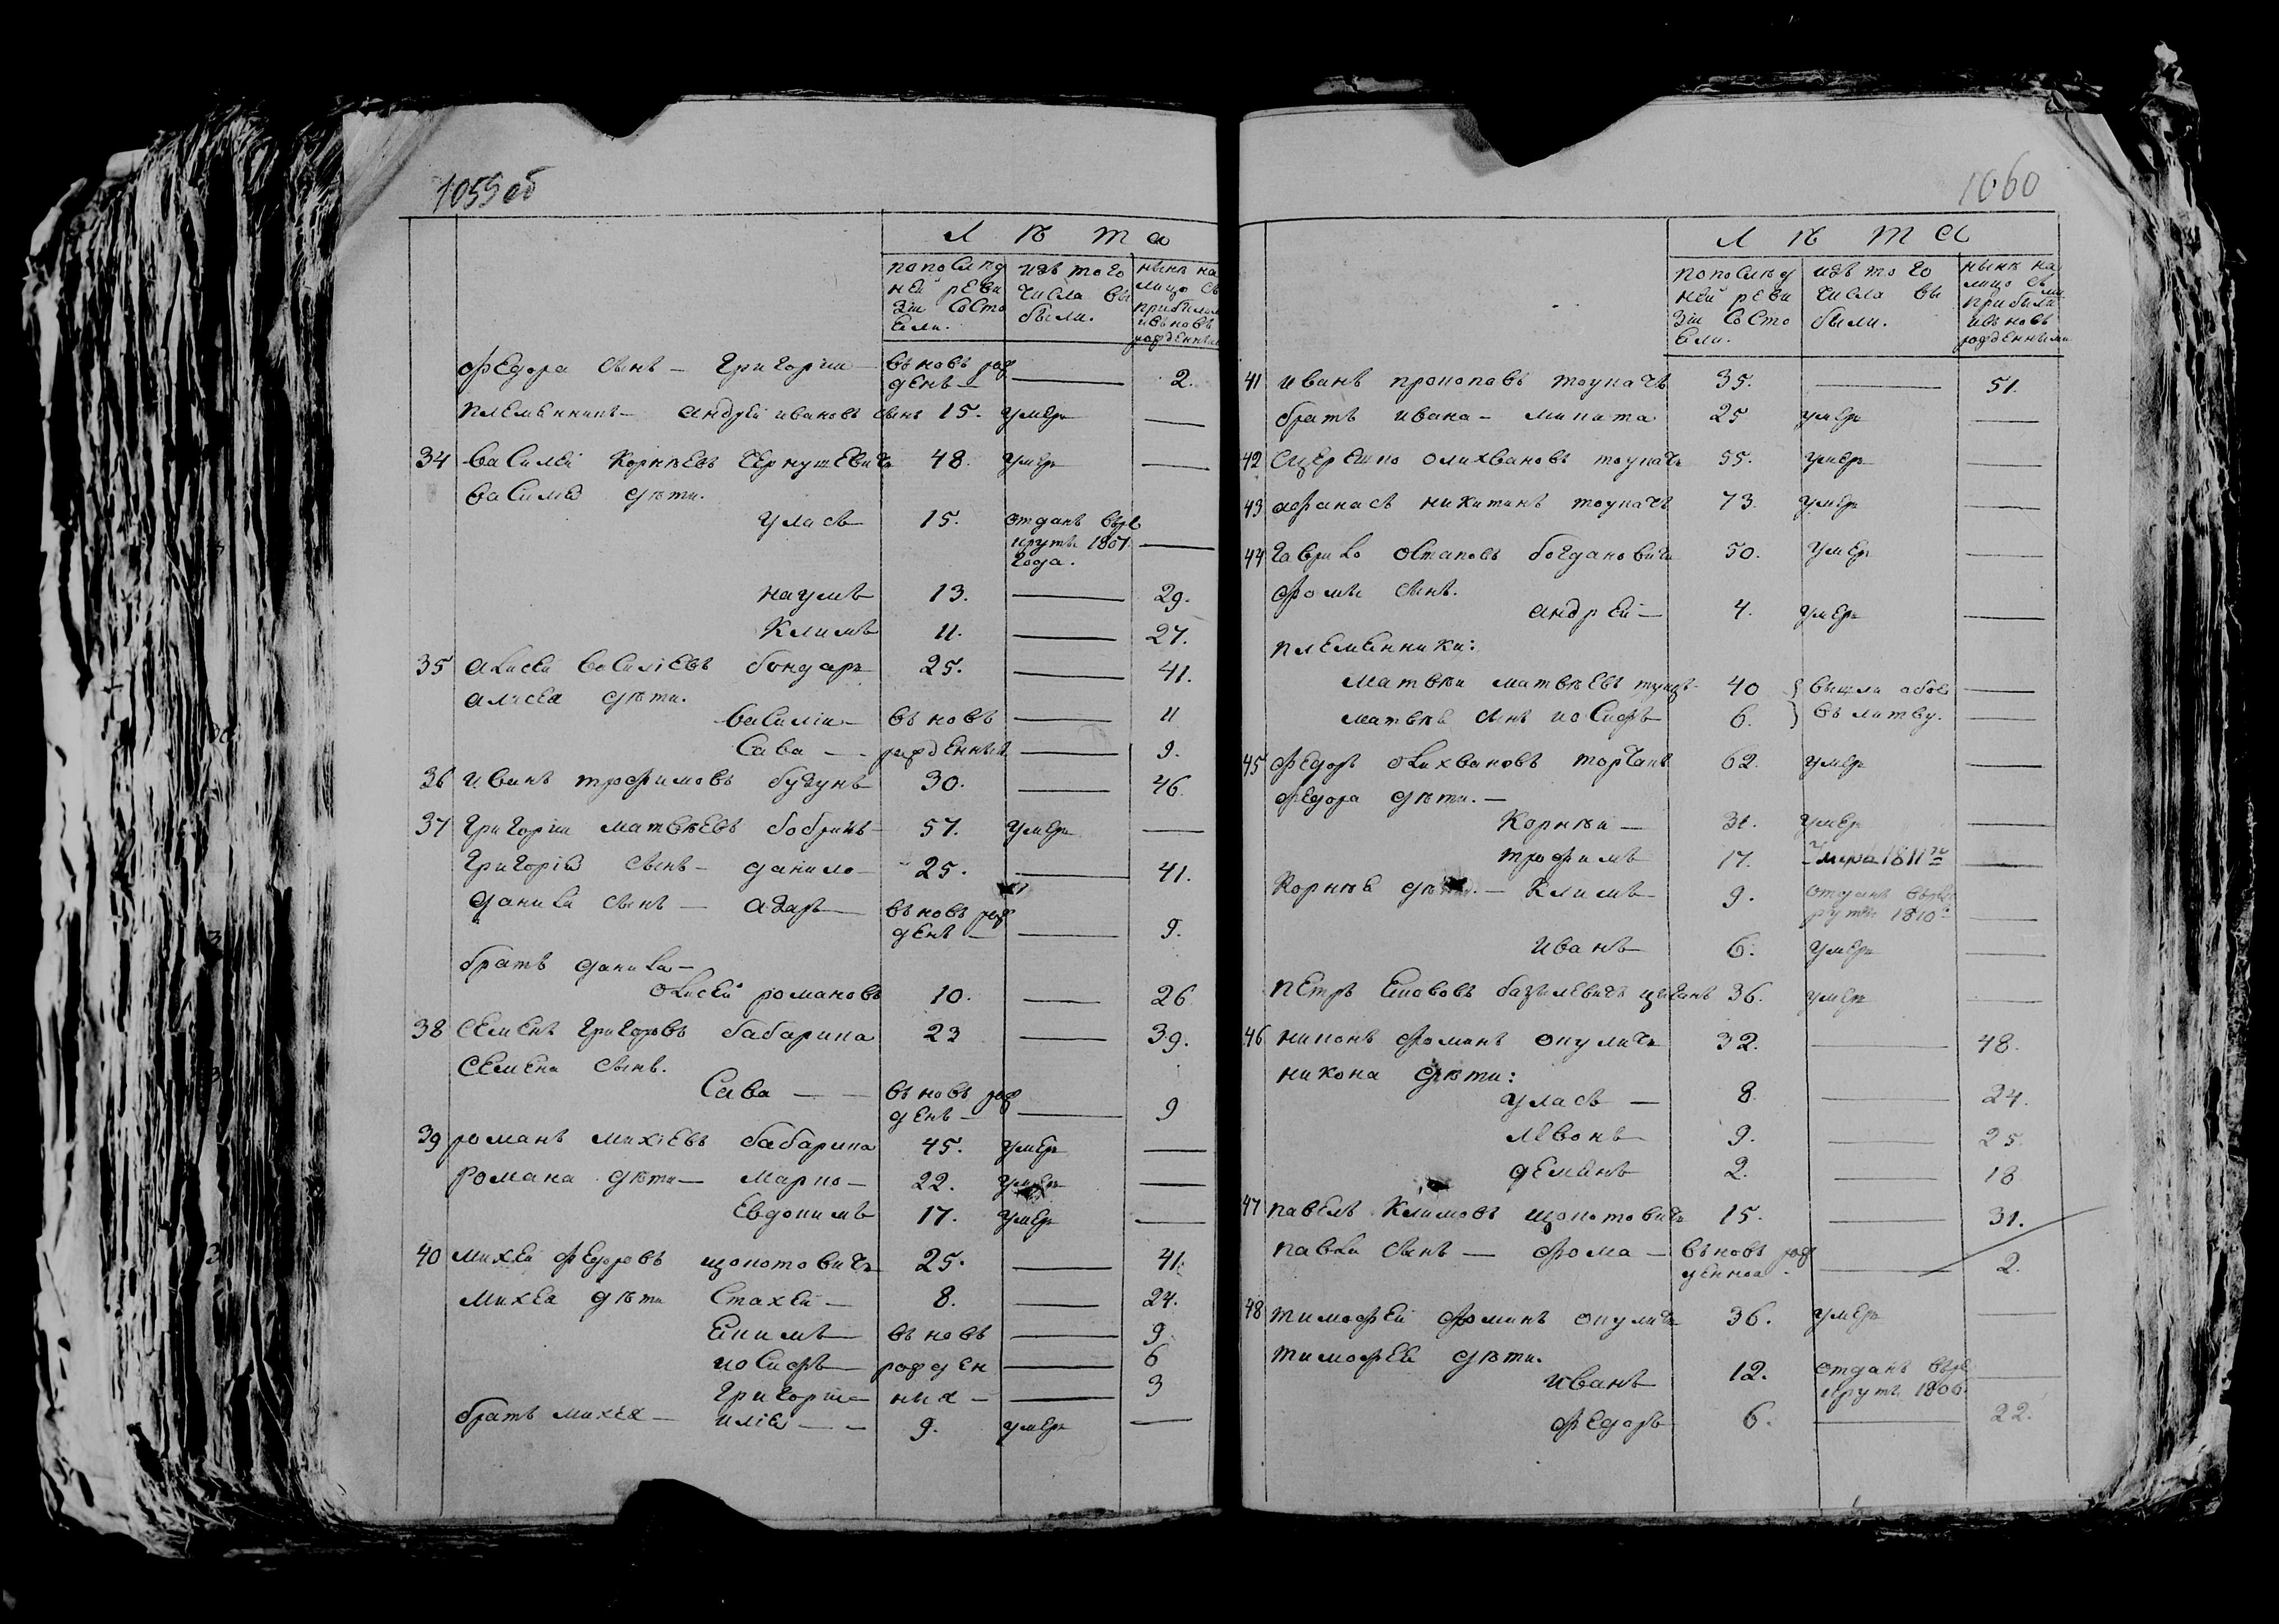 1059 об
Лѣта
попослѣд
ней реви
зіи состо
яли.
изъ того
числа вы
были.
нынѣ на
лицо съ
прибылыми
ивъновь
рожденными
федора сынъ — григорій — въновь рож
денъ — — 2.
племянникъ — андрей ивановъ сынъ 15. умеръ —
34 василей корнѣевъ чернушевичъ 48. умеръ —
василія дѣти.
уласъ 15. отданъ въре
круты 1807. —
года.
наумъ 13. — 29.
климъ 11. — 27.
35 алисей василіевъ бондарь 25. — 41.
алисея дѣти.
василій — въновь — 11
сава — — рожденныя — 9.
36 иванъ трофимовъ 30. — 46.
37 григорій матвѣевъ 57. умеръ —
григорія сынъ — данило — 25. — 41.
данила сынъ — азаръ — въновь рож
денъ — — 9.
братъ данила —
олисей романовъ 10. — 26
38 семенъ григоровъ бабарика 23 — 39.
семена сынъ.
сава — — въновь рож
денъ — — 9
39 романъ михѣевъ бабарика 45. умеръ —
романа дѣти — марко — 22. умеръ —
евдокимъ 17. умеръ —
40 михей федоровъ щопотовичъ 25. — 41.
михея дѣти стахей — 8. — 24.
якимъ — въновь — 9
иосифъ — рожден — 6
григорій — ныя — — 3
братъ михея — илія — — 9. умеръ —
1060
Лѣта
попослѣд
ней реви
зіи состо
яли.
изъ того
числа вы
были.
нынѣ на
лицо съ
прибылыми
ивъновь
рожденными
41 иванъ прокоповъ ткачъ 35. — 51.
братъ ивана — микита 25 умеръ —
42 олихвановъ ткачъ 55. умеръ —
43 афанасъ никитинъ ткачъ 73. умеръ —
44 гаврило остаповъ богдановичъ 50. умеръ —
фомы сынъ.
андрей — 4. умеръ —
племянники:
матвѣй матвѣевъ 40 } вышли обое —
матвѣя сынъ иосифъ 6. } въ литву. —
45 федоръ олихвановъ 62. умеръ —
федора дѣти. —
корнѣй — 31. умеръ —
трофимъ 17. умеръ 1811го —
корнѣя дѣти. — климъ 9. отданъ върек
руты 1810го —
иванъ 6. умеръ —
петръ базылевичъ цыганъ 36. умеръ —
46 никонъ фоминъ окуличъ 32. — 48.
никона дѣти:
уласъ — 8. — 24.
левонъ 9. — 25.
демянъ 2. — 18
47 павелъ климовъ щопотовичъ 15. — 31.
павла сынъ — фома — въновь рож
денной — — 2.
48 тимофей фоминъ окуличъ 36. умеръ —
тимофея дѣти.
иванъ 12. отданъ въре
круты 1806. —
федоръ 6. — 22.